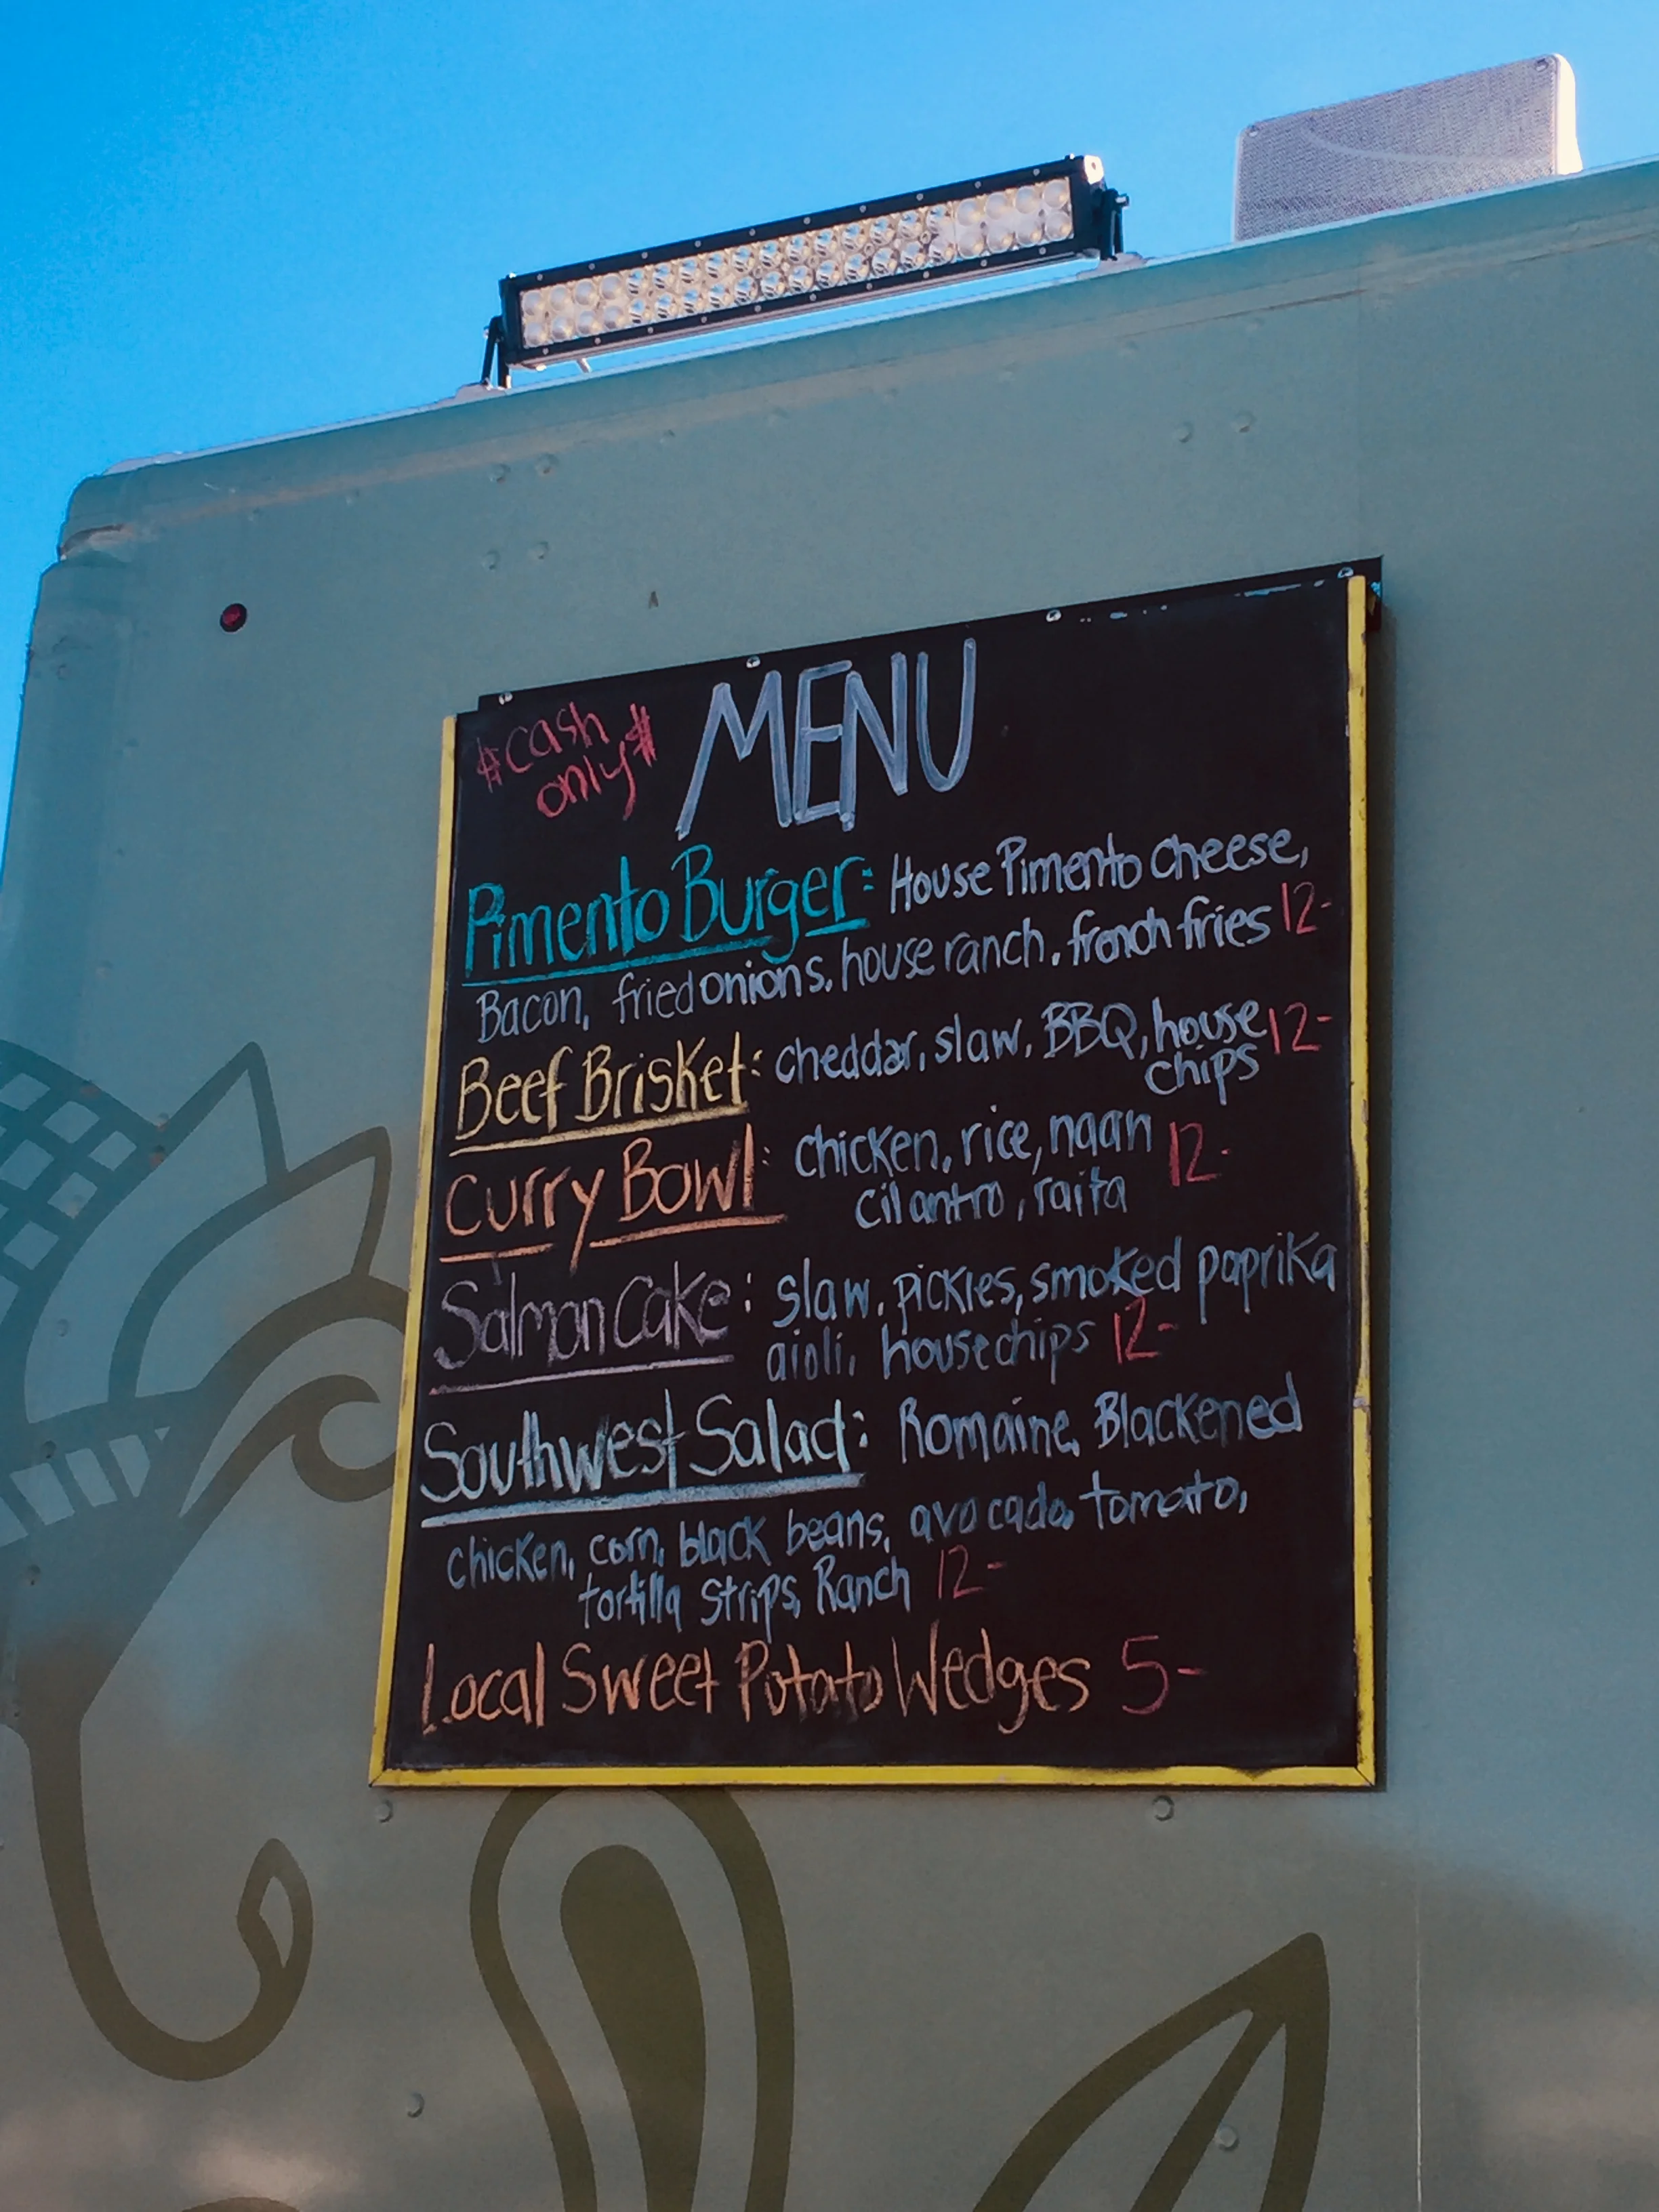 #cash
only#
MENU
Pimento Burger: House Pimento Cheese,
Bacon, fried onions, house ranch, french fries 12-
Beef Brisket: cheddar, slaw, BBQ, house 12-
chips
Curry Bowl: chicken, rice, naan 12-
cilantro, raita
Salmon Cake: slaw, pickles, smoked paprika
aioli, house chips 12-
Southwest Salad: Romaine, Blackened
chicken, corn, black beans, avocado, tomato,
tortilla strips, Ranch 12-
Local Sweet Potato Wedges 5-